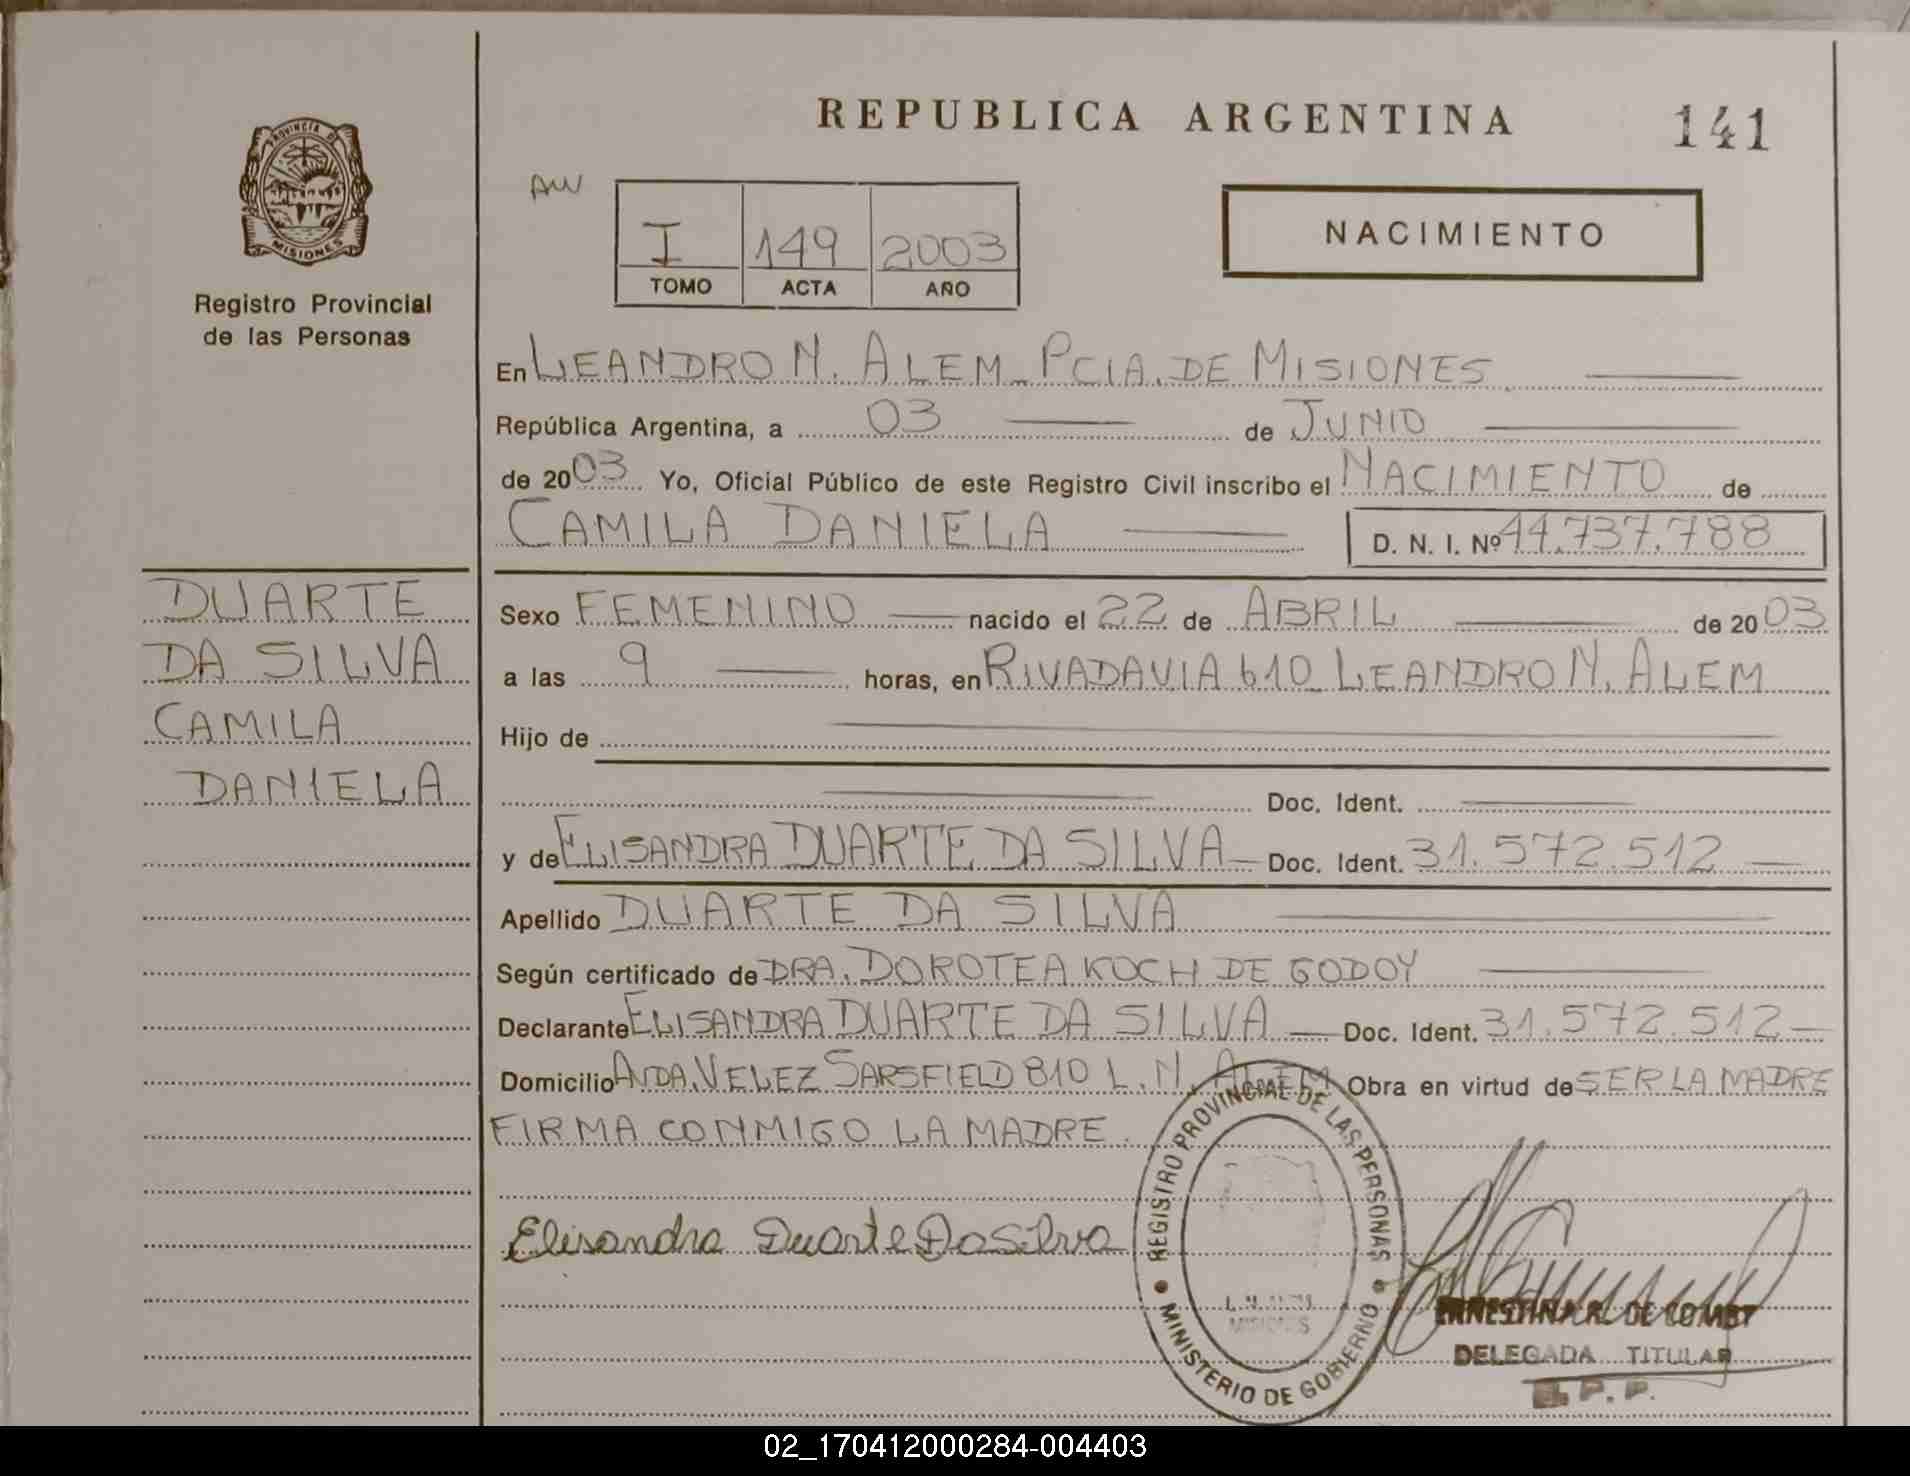 REPUBLICA ARGENTINA
141
PROVINCIA DE
MISIONES
Registro Provincial
de las Personas
AW
I 149 2003
TOMO ACTA AÑO
NACIMIENTO
En LEANDRO N. ALEM - PCIA. DE MISIONES
República Argentina, a 03 de JUNIO
de 2003 Yo, Oficial Público de este Registro Civil inscribo el NACIMIENTO de
CAMILA DANIELA D. N. I. Nº 44.737.788
DUARTE
DA SILVA
CAMILA
DANIELA
Sexo FEMENINO nacido el 22 de ABRIL de 2003
a las 9 horas, en RIVADAVIA 610 LEANDRO N. ALEM
Hijo de
Doc. Ident.
y de ELISANDRA DUARTE DA SILVA Doc. Ident. 31.572.512
Apellido DUARTE DA SILVA
Según certificado de DRA. DOROTEA KOCH DE GODOY
Declarante ELISANDRA DUARTE DA SILVA Doc. Ident. 31.572.512
Domicilio AVDA. VELEZ SARSFIELD 810 L. N. ALEM Obra en virtud de SER LA MADRE
FIRMA CONMIGO LA MADRE.
Elisandra Duarte Da Silva
REGISTRO PROVINCIAL DE LAS PERSONAS
MINISTERIO DE GOBIERNO
L. N. ALEM
MISIONES
DELEGADA TITULAR
02_170412000284-004403